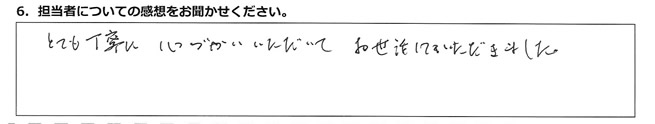 6. 担当者についての感想をお聞かせください。
とても丁寧に 心づかいいただいて お世話していただきました。